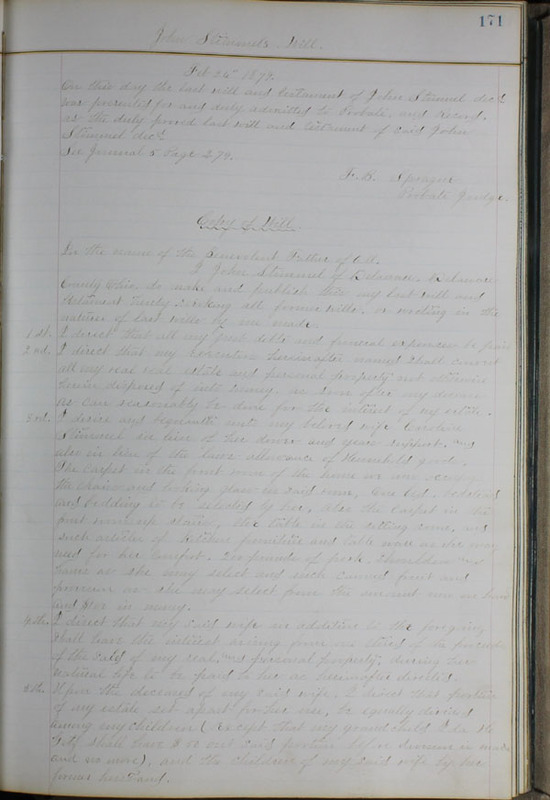 171
John Stimmel's Will.
Feb 24" 1879.
On this day the last will and testament of John Stimmel decd
was presented for and duly admitted to Probate, and Record.
as the duly proved last will and testament of said John
Stimmel decd
See Journal 5 Page 279.
F. B. Sprague
Probate Judge.
Copy of Will.
In the name of the Benevolent Father of All.
I John Stimmel of Delaware, Delaware
County Ohio do make and publish this my last will and
testament hereby revoking all former wills, or writing in the
nature of last wills by me made.
1st. I direct that all my just debts and funeral expenses be paid
2nd. I direct that my executor hereinafter named shall convert
all my real estate and personal property not otherwise
herein disposed of into money. as soon after my decease
as can reasonably be done for the interest of my estate.
3rd. I devise and bequeath unto my beloved wife Caroline
Stimmel in lieu of her dower and years support. and
also in lieu of the laws allowance of Household goods.
The carpet in the front room of the house we now occupy
the chairs and looking glass in said room, One bed, bedstead
and bedding to be selected by her, Also the carpet in the
front room up stairs, the table in the sitting room, and
such articles of kitchen furniture and table ware as she may
need for her comfort. 200 pounds of pork, shoulders and
hams as she may select any such canned fruit and
provision as she may select from the amount now on hand
and in money.
4th. I direct that my said wife in addition to the foregoing
shall have the interest arising from of the proceeds
of the sale of my real and personal property, during her
natural life to be paid to her as hereinafter directed.
5th. Upon the decease of my said wife, I direct that portion
of my estate set apart for her use, to be equally divided
among my children (Except that my grand child Ida
shall have out said portion before division is made
and no more), and the children of my said wife by her
former husband.